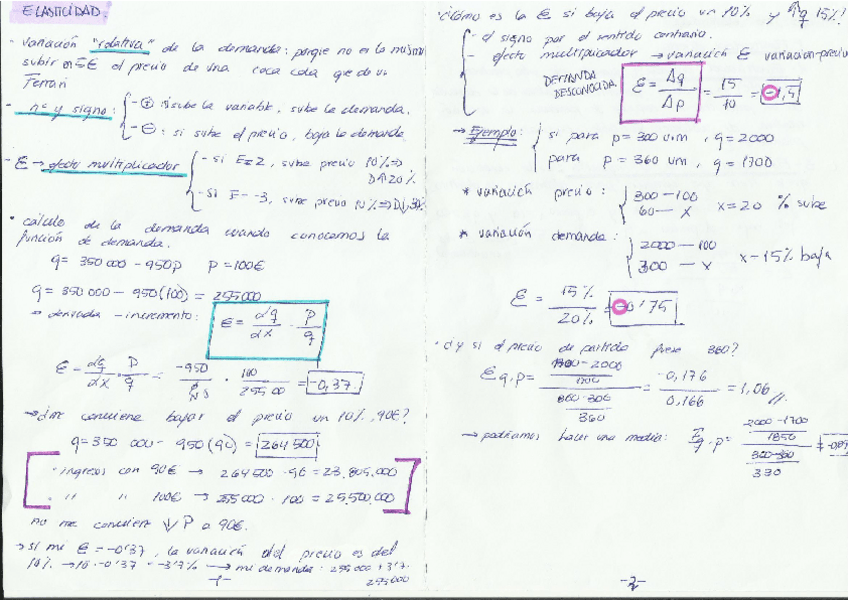 ELASTICIDAD.
· variación "relativa" de la demanda: porque no es lo mismo
subir 5€ el precio de una coca cola que de un
Ferrari
- nº y signo: - ⊕: si sube la variable, sube la demanda.
- ⊖: si sube el precio, baja la demanda
- E → efecto multiplicador - si E=2, sube precio 10% ⇒
D↑20%
- Si E=-3, sube precio 10% ⇒ D↓3%
· cálculo de la demanda cuando conocemos la
función de demanda.
q = 350 000 - 950p p = 100€
q = 350 000 - 950(100) = 255000
⇒ derivada - incremento: E = dq/dx · p/q
E = dq/dx · p/q = -950 · 100/255 00 = -0,37
→ ¿me conviene bajar el precio un 10%, 90€?
q = 350 000 - 950(90) = 264 500
· ingresos con 90€ → 264 500 · 90 = 23.805.000
· " " 100€ → 255 000 · 100 = 25.500.000
no me conviene ↓P a 90€.
→ si mi E = -0'37, la variación del precio es del
10% → 10 · -0'37 = -3'7% → mi demanda = 255 000 + 3'7 ·
255 000
-1-
· ¿Cómo es la E si baja el precio un 10% y ↑q 15%?
- el signo por el sentido contrario.
- efecto multiplicador → variación E variación precio
DEMANDA
DESCONOCIDA E = Δq/Δp = 15/10 = -1,5
→ Ejemplo: si para p = 300 um, q = 2000
para p = 360 um, q = 1700
* variación precio: 300 — 100
60 — x x = 20 % sube
* variación demanda: 2000 — 100
300 — x x - 15% baja
E = 15%/20% = -0'75
· ¿y si el precio de partida fuese 360?
Eq.p = = -0,176/0,166 = 1,06 //.
→ podríamos hacer una media: Eq.p =
2000 - 1700
1850
330
-2-